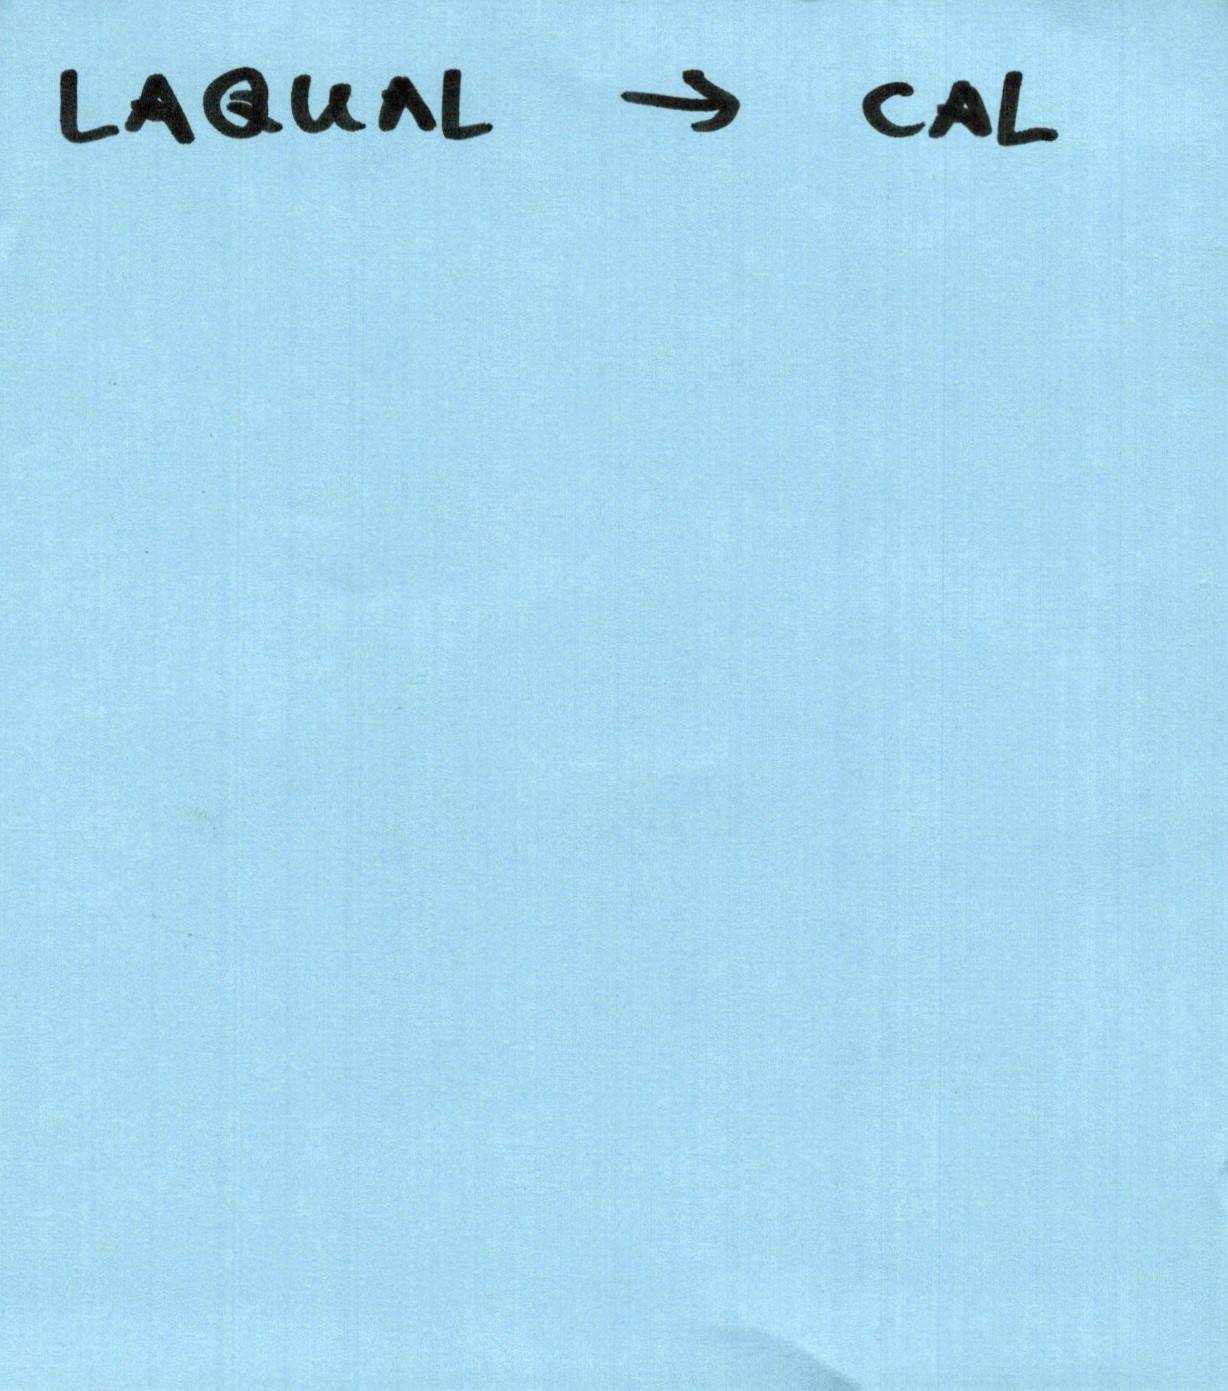 LAQUAL → CAL